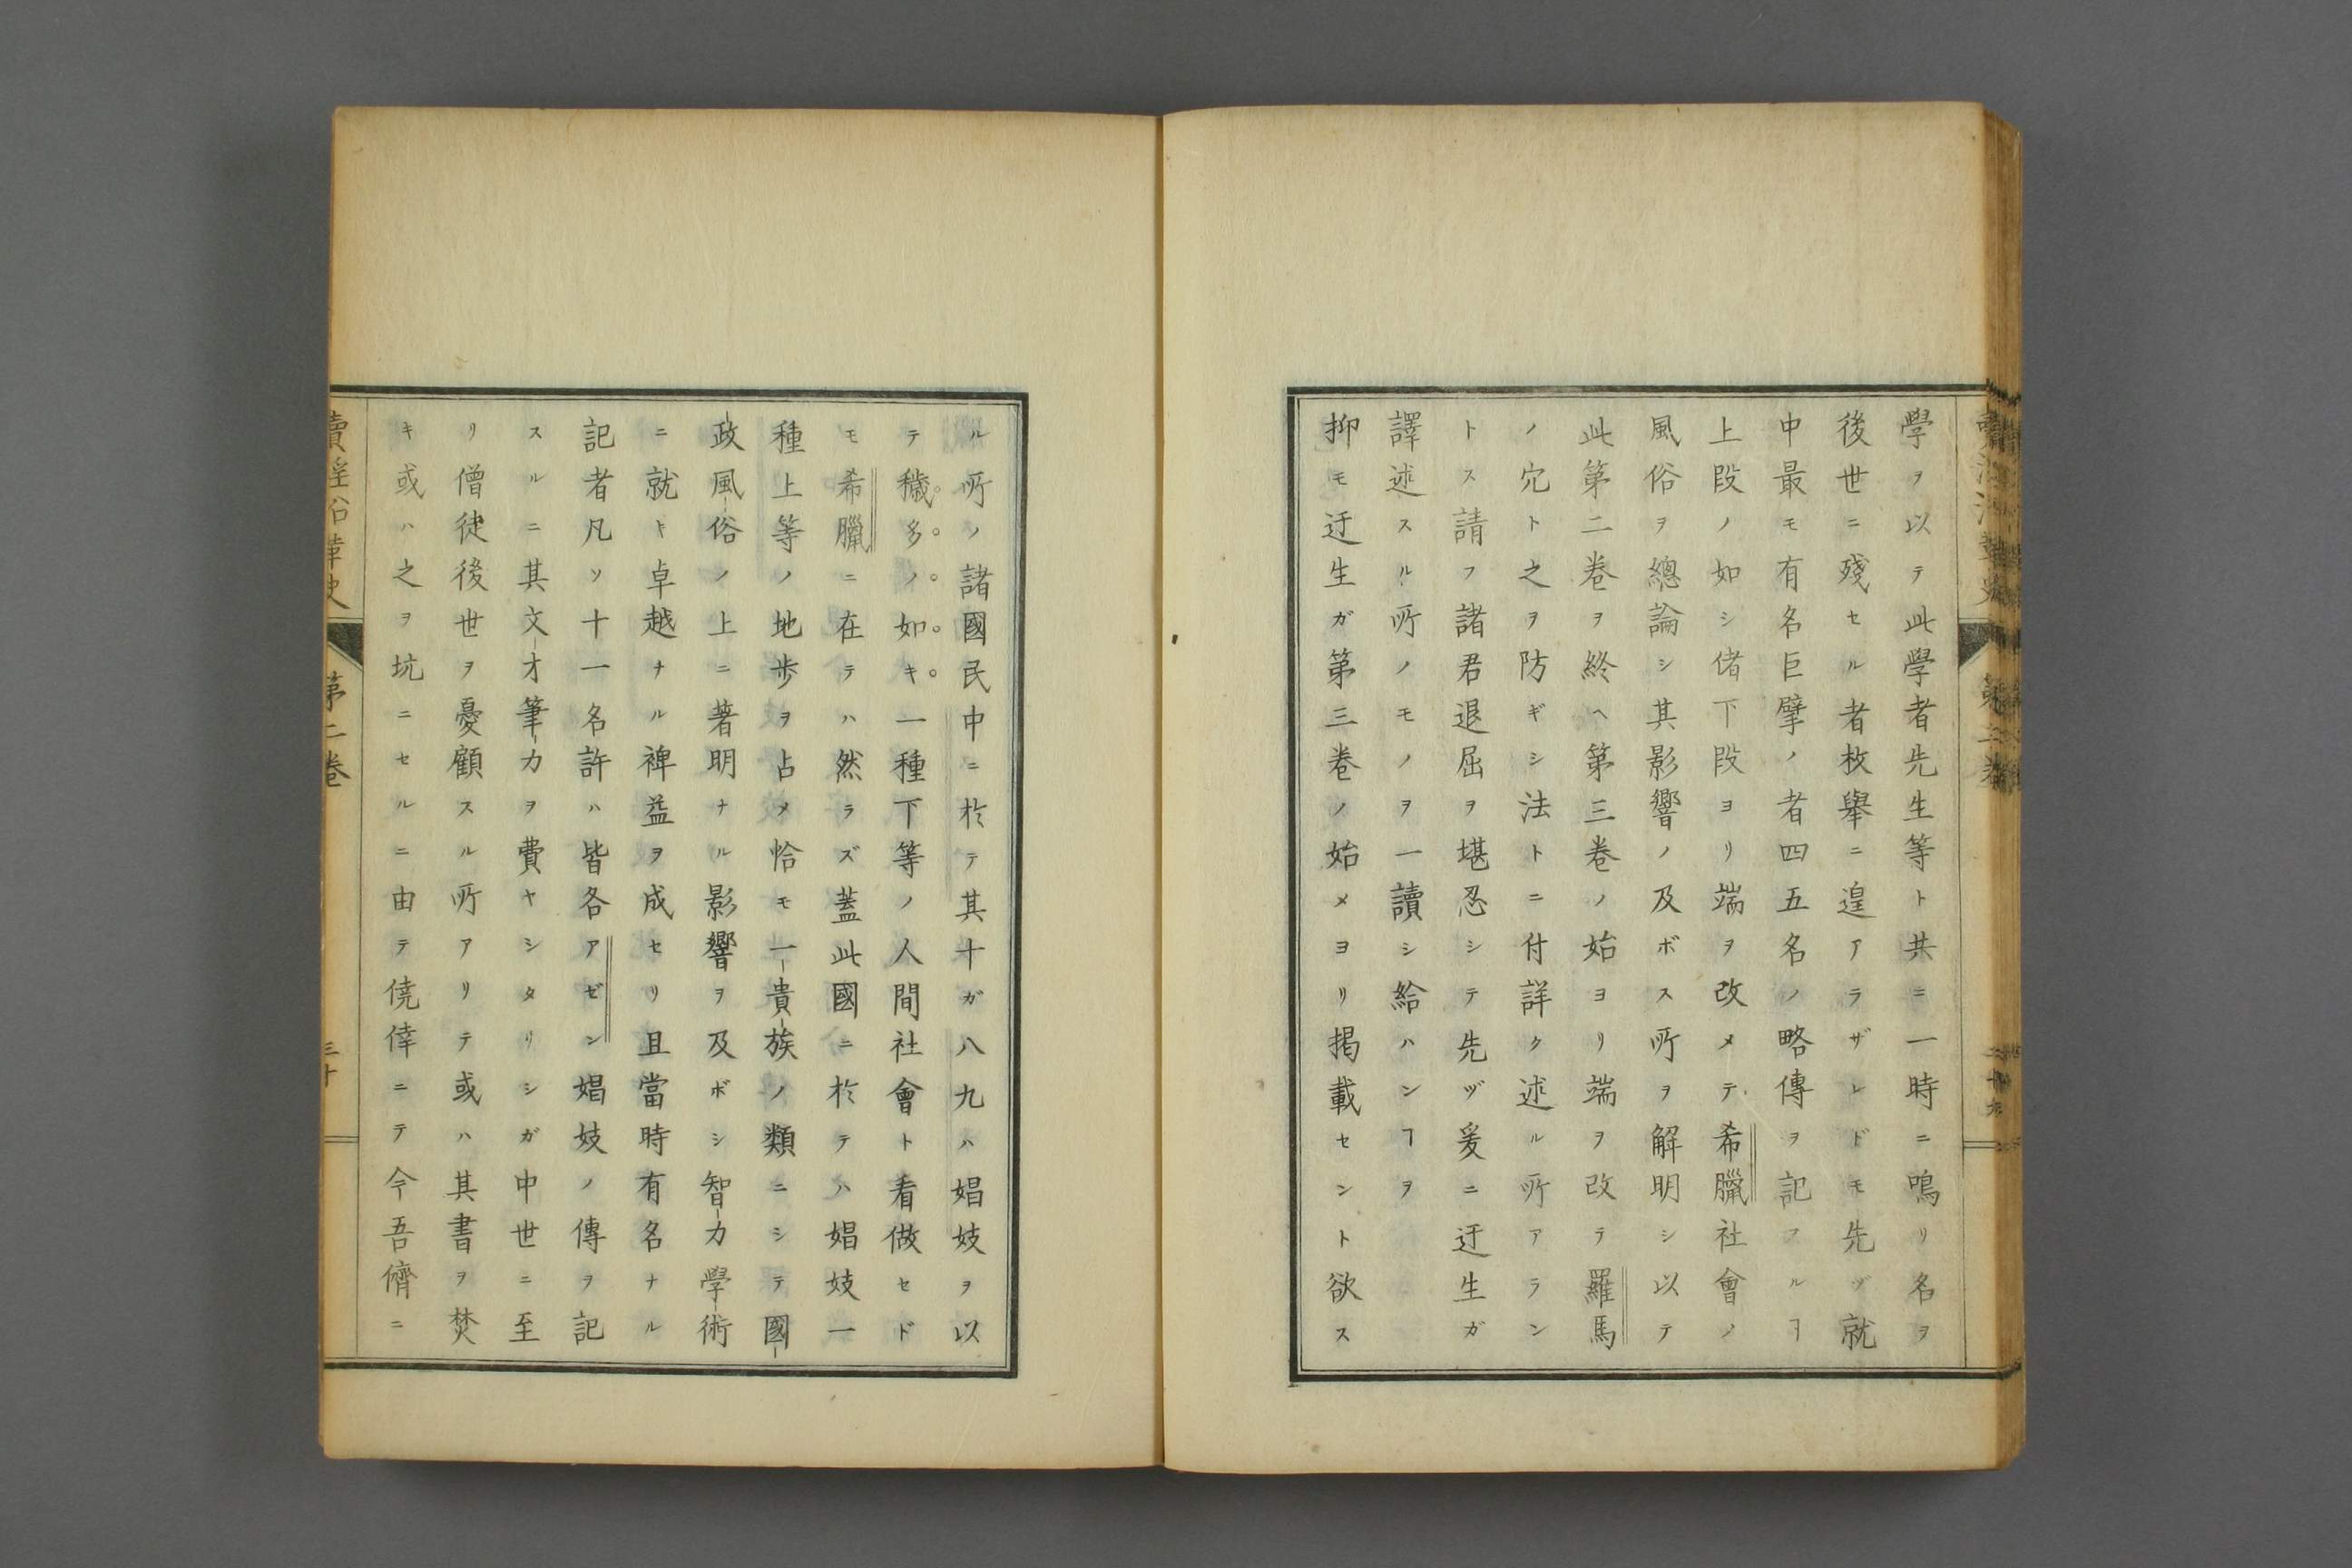 學ヲ以テ此學者先生等ト共ニ一時ニ鳴リ名ヲ
後世ニ殘セル者枚舉ニ遑アラザレドモ先ヅ就
中最モ有名巨擘ノ者四五名ノ略傳ヲ記フルヿ
上段ノ如シ偖下段ヨリ端ヲ改メテ希臘社會ノ
風俗ヲ總論シ其影響ノ及ボス所ヲ解明シ以テ
此第二卷ヲ終ヘ第三卷ノ始ヨリ端ヲ改テ羅馬
ノ穴ト之ヲ防ギシ法トニ付詳ク述ル所アラン
トス請フ諸君退屈ヲ堪忍シテ先ヅ爰ニ迂生ガ
譯述スル所ノモノヲ一讀シ給ハンヿヲ
抑モ迂生ガ第三卷ノ始メヨリ掲載セント欲ス
ル所ノ諸國民中ニ於テ其十ガ八九ハ娼妓ヲ以
テ穢多ノ如キ一種下等ノ人間社會ト看做セド
モ希臘ニ在テハ然ラズ蓋此國ニ於テハ娼妓一
種上等ノ地歩ヲ占メ恰モ一貴族ノ類ニシテ國
政風俗ノ上ニ著明ナル影響ヲ及ボシ智力學術
ニ就キ卓越ナル裨益ヲ成セリ且當時有名ナル
記者凡ソ十一名許ハ皆各アゼン娼妓ノ傳ヲ記
スルニ其文才筆力ヲ費ヤシタリシガ中世ニ至
リ僧徒後世ヲ憂顧スル所アリテ或ハ其書ヲ焚
キ或ハ之ヲ坑ニセルニ由テ僥倖ニテ今吾儕ニ
賣淫沿革史 第二卷 三十